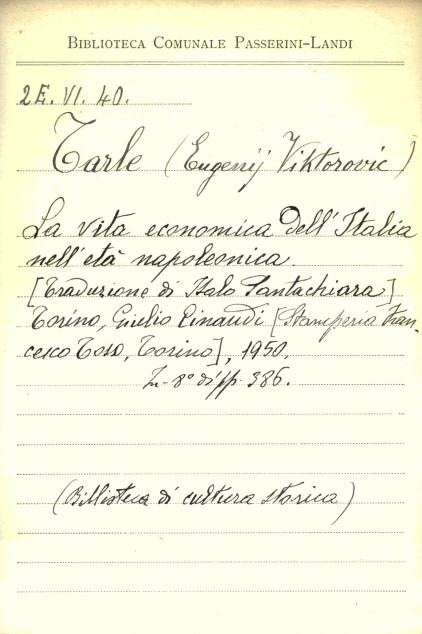 BIBLIOTECA COMUNALE PASSERINI-LANDI
2E. VI. 40.
Tarle (Eugenij Viktorovic)
La vita economica dell'Italia
nell'età napoleonica.
[Traduzione di Italo Santachiara]
Torino, Giulio Einaudi [Stamperia Fran-
cesco Toso, Torino], 1950.
In-8° di pp. 386.
(Biblioteca di cultura storica)